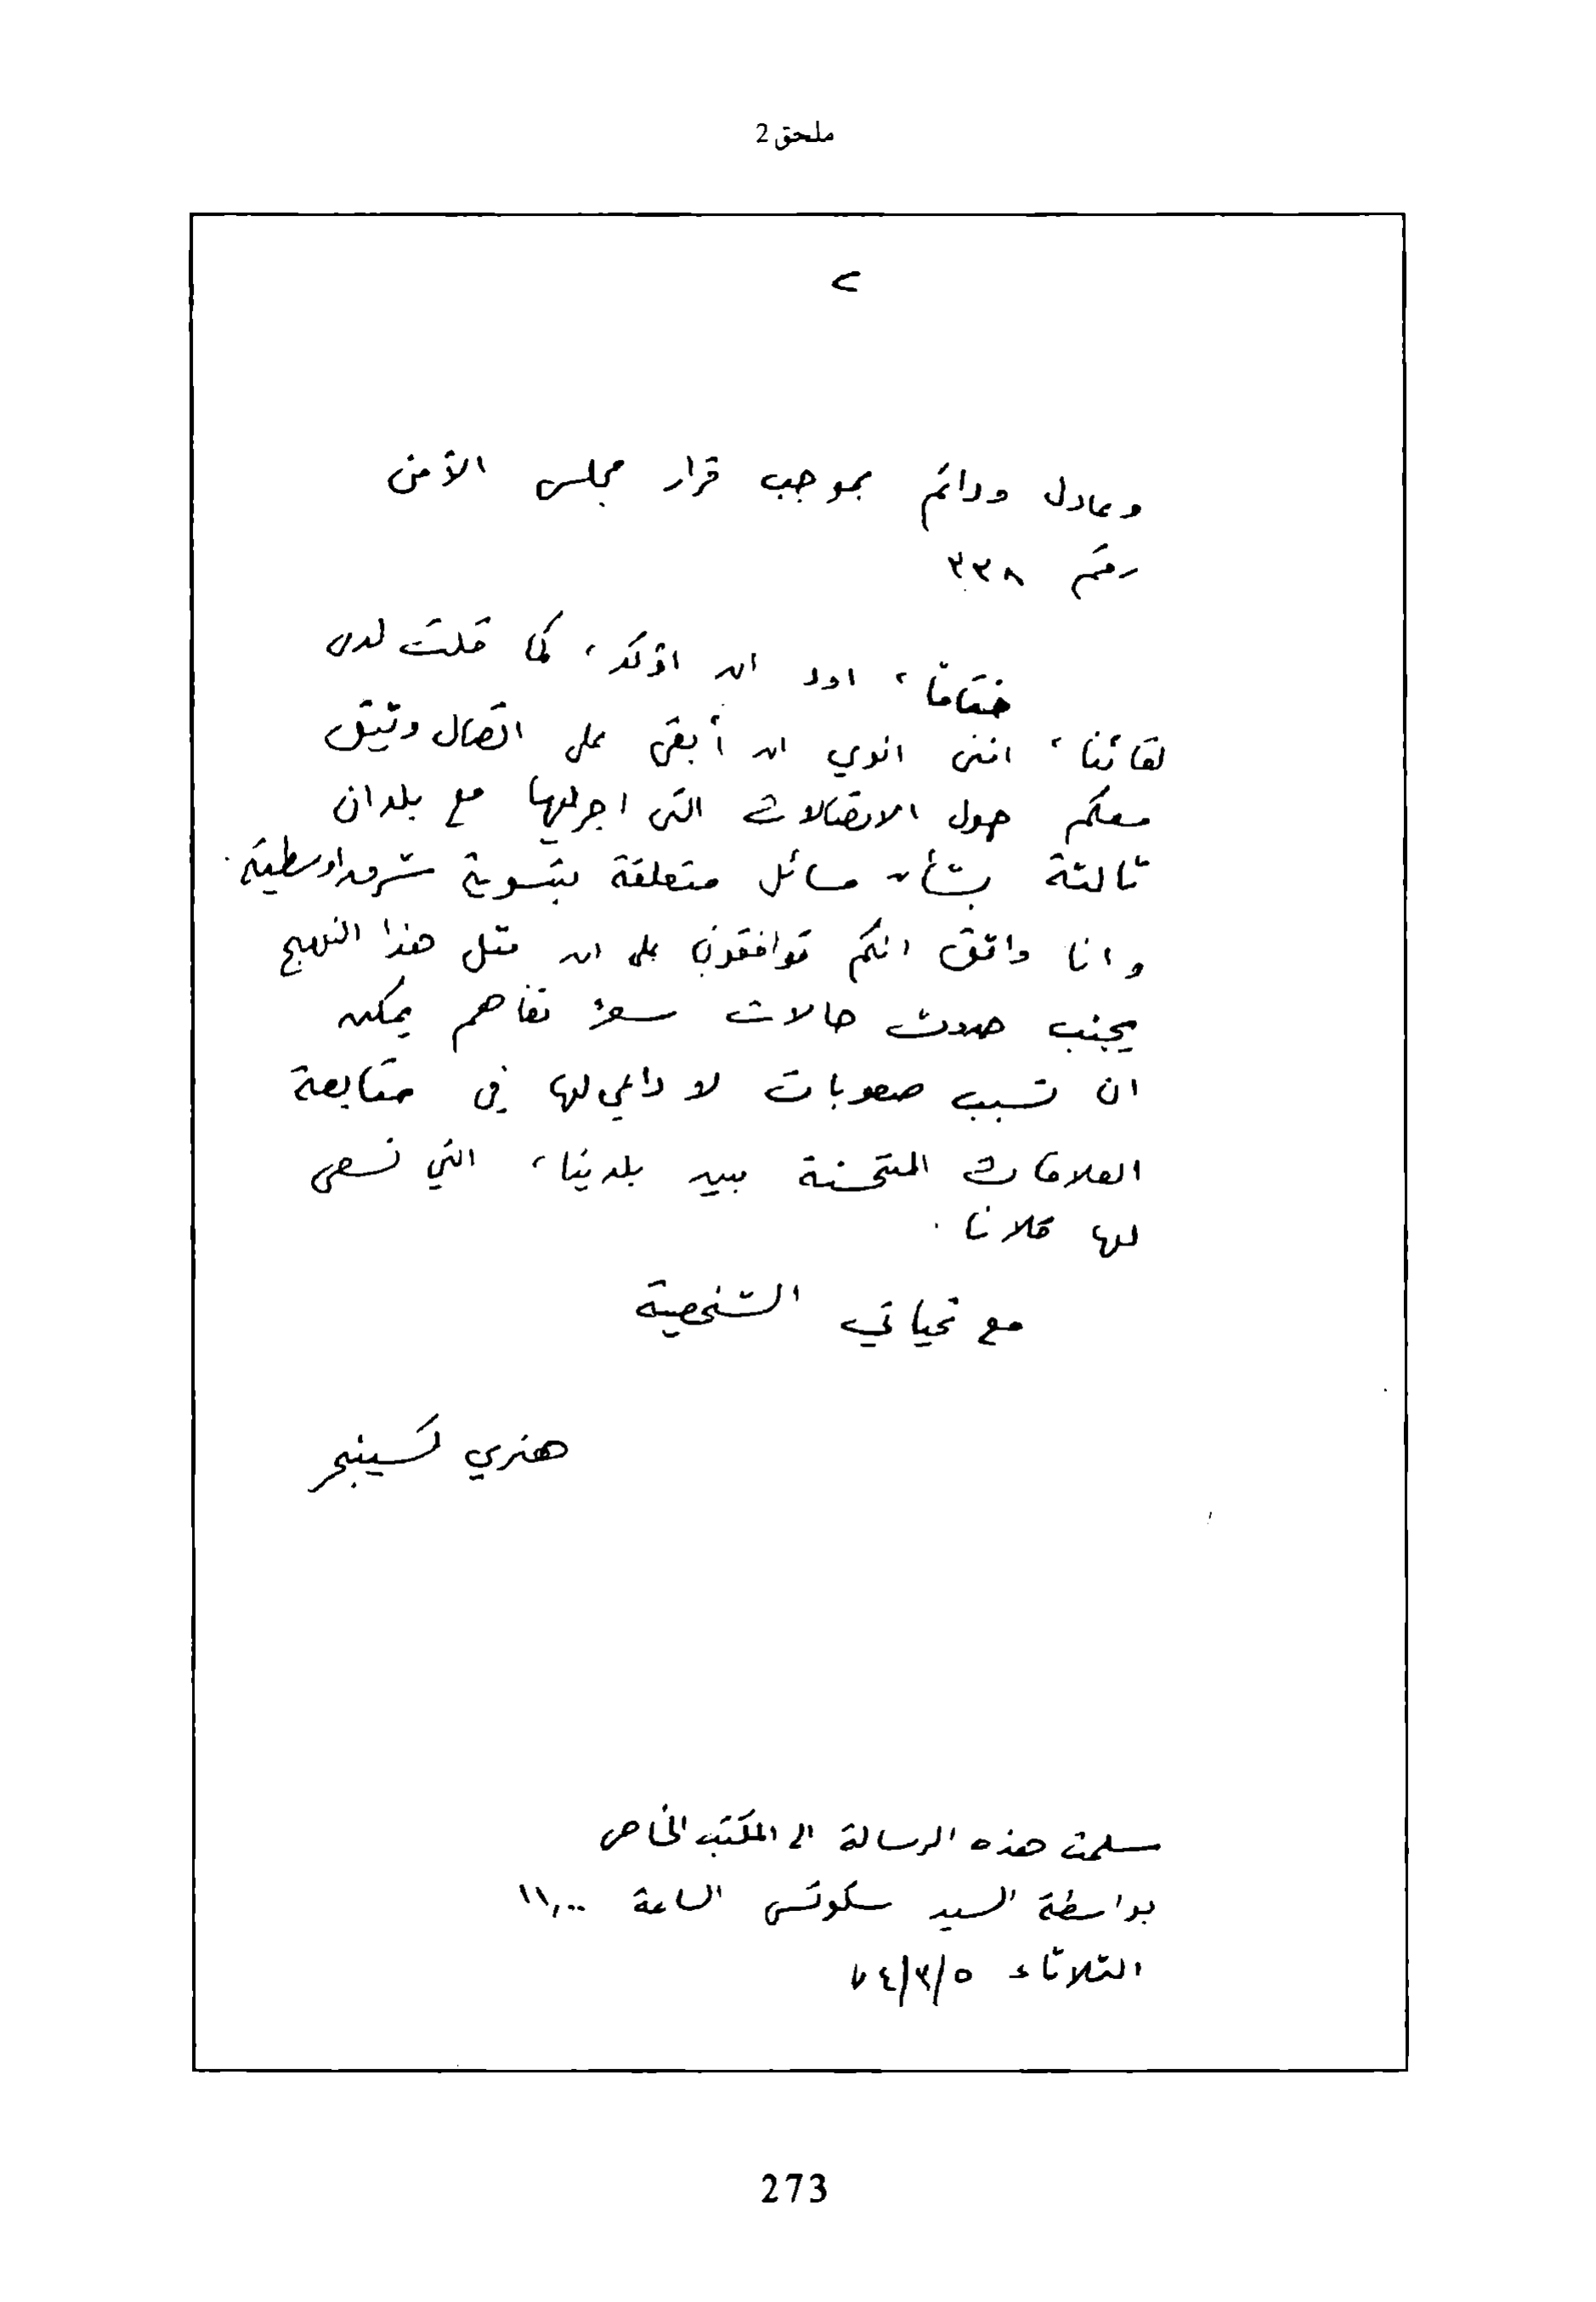 ملحق 2
٢
وعادل ودائم بموجب قرار مجلس الأمن
رقم ٣٣٨
ختامًا، اود ان اؤكد، كما قلت لدى
لقائنا، انني انوي ان أبقى على اتصال وثيق
معكم حول الاتصالات التي اجريها مع بلدان
ثالثة بشأن مسائل متعلقة بتسوية شرق اوسطية.
وانا واثق انكم توافقوني على ان مثل هذا النهج
يجنب حدوث حالات سوء تفاهم يمكن
ان تسبب صعوبات لا داعي لها في متابعة
العلاقات المتحسنة بين بلدينا، التي نسعى
لها كلانا.
مع تحياتي الشخصية
هنري كسينجر
سلمت هذه الرسالة الى المكتب الخاص
بواسطة السيد سكوتس الساعة ١١,٠٠
الثلاثاء ٧٤/٣/٥
273